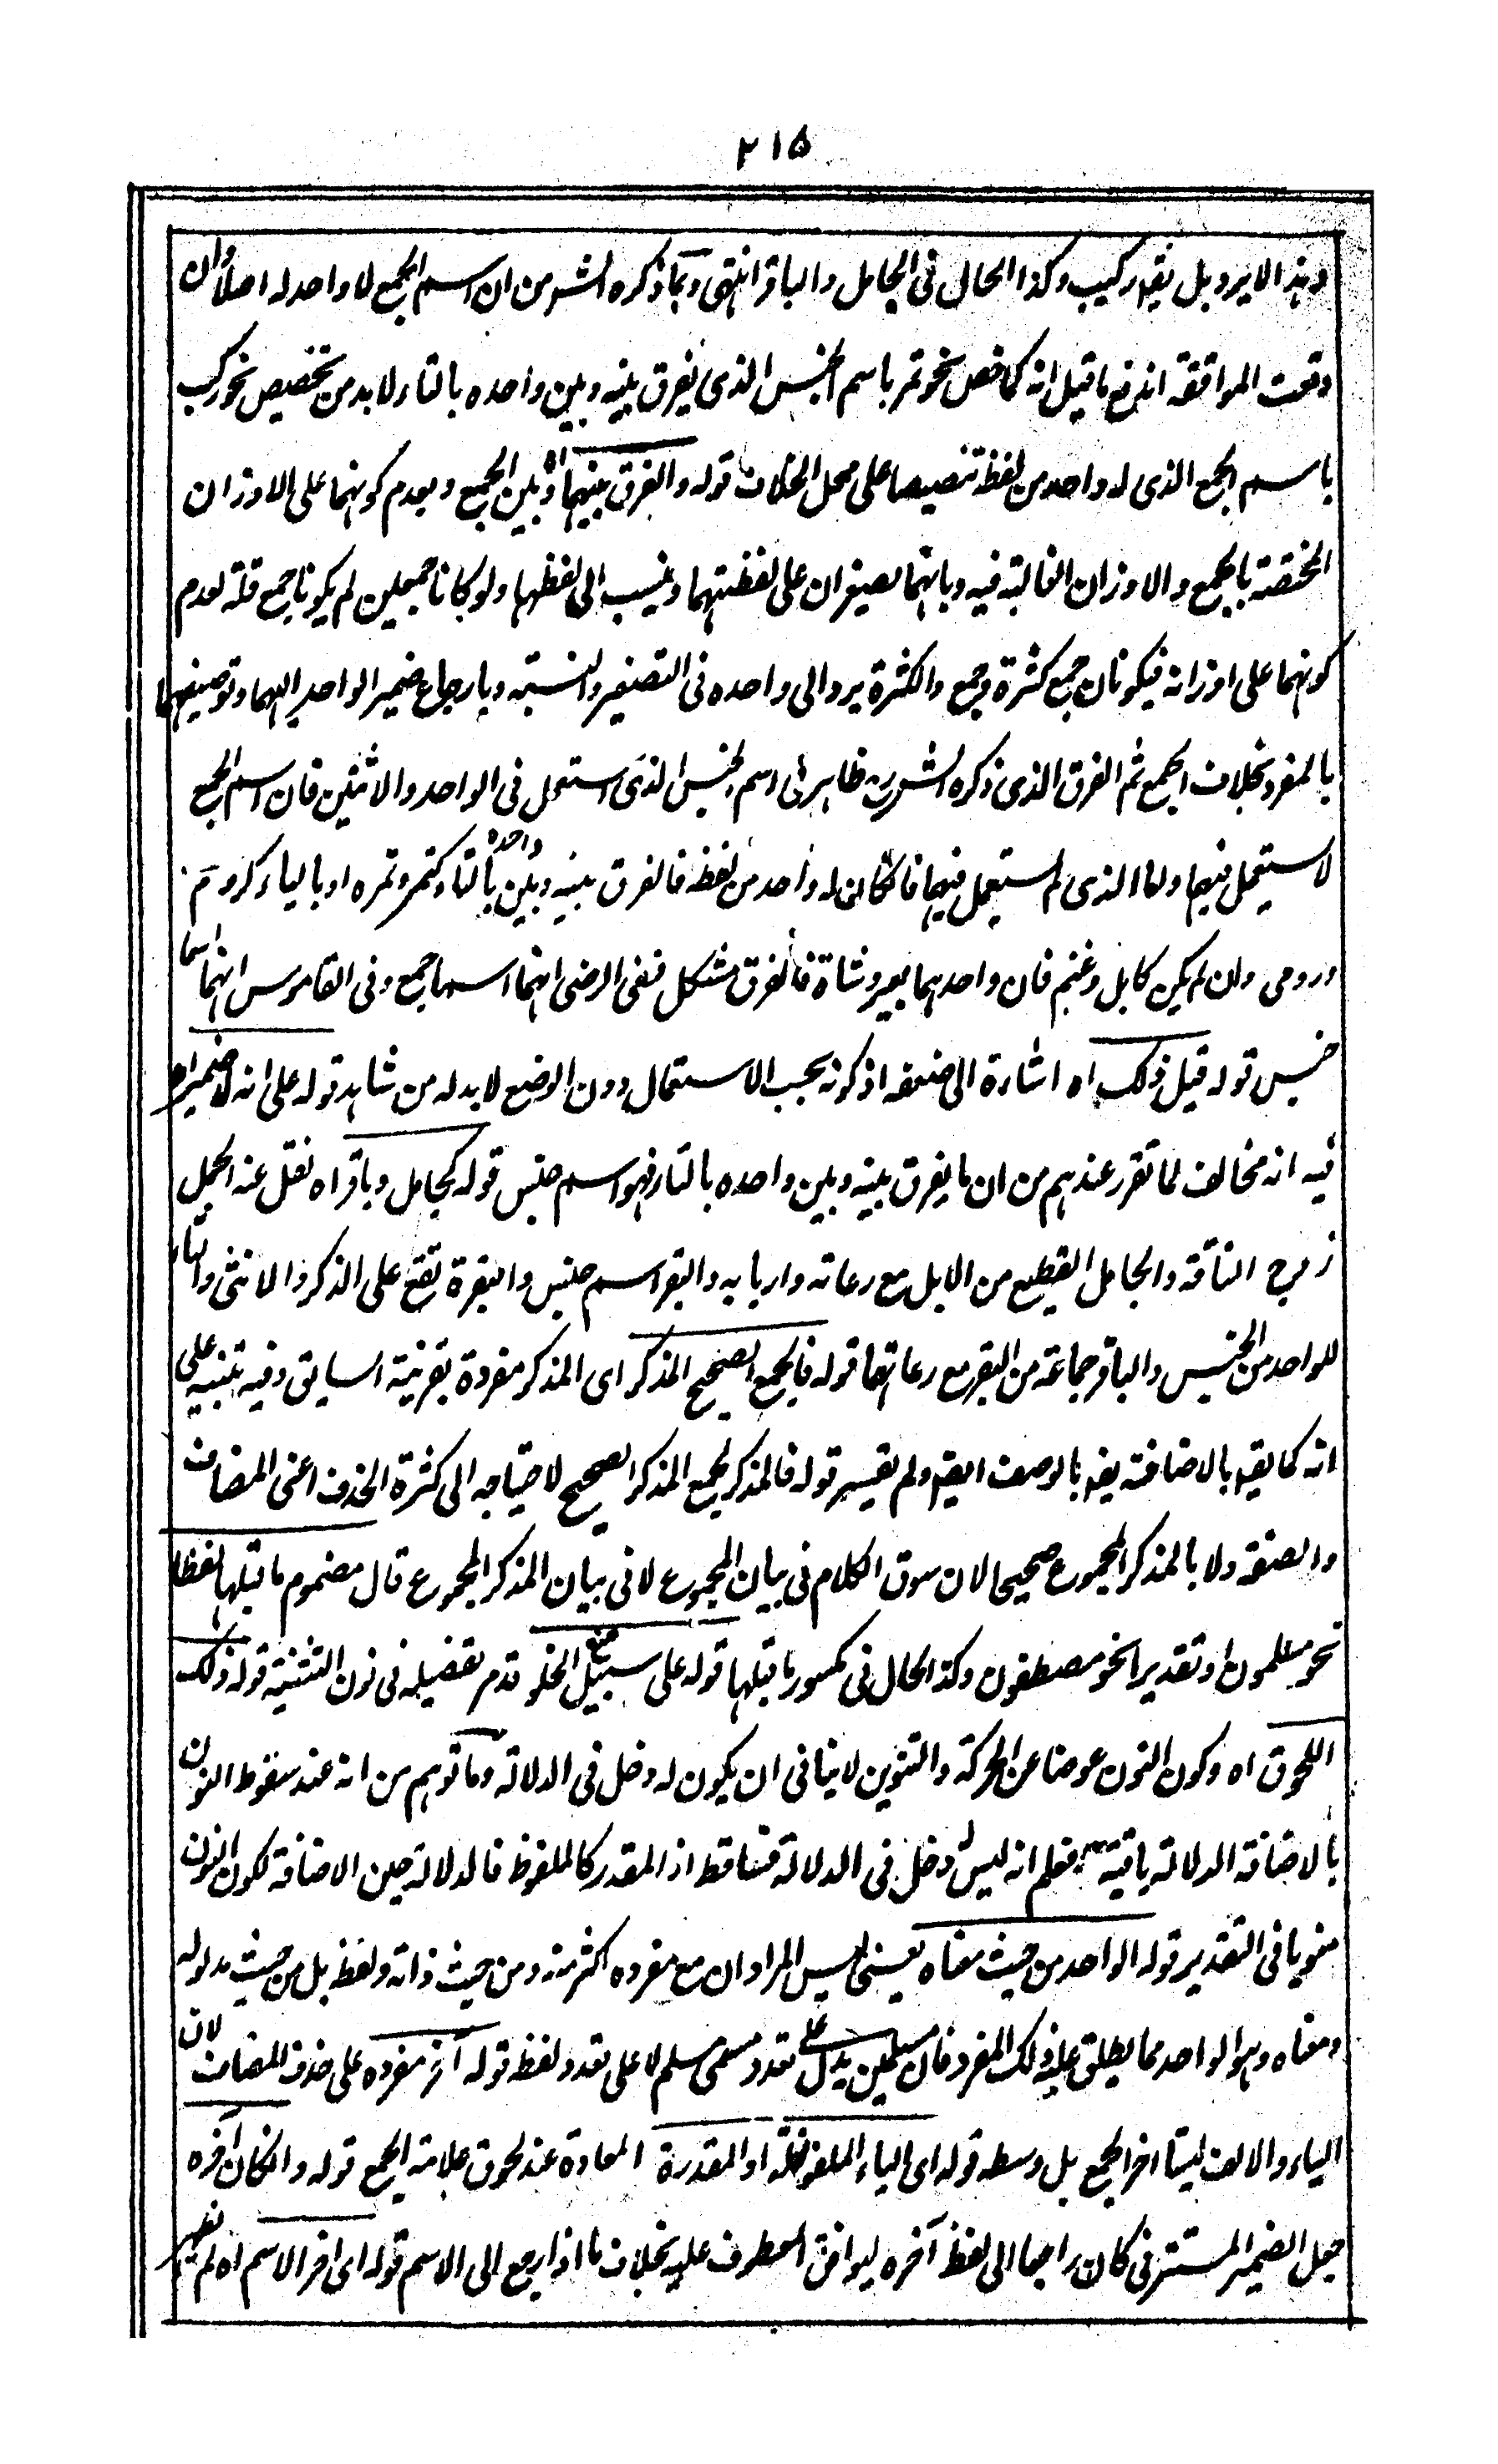 ٢١٥
وهذا لا يرد بل يقع ركيب وكذا الحال فى الجامل والباقر انتهى وبما ذكره الشر من ان اسم الجمع لا واحد له اصلا وان
وقعت الموافقة اندفع ما قيل انه كما خص نحو تمر باسم الجنس الذى يفرق بينه وبين واحده بالتاء لا بد من تخصيص نحو ركب
باسم الجمع الذى له واحد من لفظه تنصيصا على محل الخلاف قوله والفرق بينهما اه وبين الجمع وبعدم كونهما على الاوزان
المختصة بالجمع والاوزان الغالبة فيه وبانهما يصغران على لفظتهما وينسب الى لفظهما ولو كانا جمعين لم يكونا جمع قلة لعدم
كونهما على اوزانه فيكونان جمع كثرة وجمع والكثرة يرد الى واحده فى التصغير والنسبة وبارجاع ضمير الواحد اليهما وتوصيفهما
بالمفرد بخلاف الجمع ثم الفرق الذى ذكره الشر ظاهر فى اسم الجنس الذى استعمل فى الواحد والاثنين فان اسم الجمع
لا يستعمل فيهما واما الذى لم يستعمل فيهما فان كان له واحد من لفظه فالفرق بينه وبين واحده بالتاء كتمر وتمره او بالياء كروم
ورومى وان لم يكن كابل وغنم فان واحدهما بعير وشاة فالفرق مشكل ففى الرضى انهما اسما جمع وفى القاموس انهما اسما
جنس قوله قيل ذلك اه اشارة الى ضعفه اذ كونه بحسب الاستعمال دون الوضع لا بد له من شاهد قوله على انه لا ضمير اه
فيه انه مخالف لما تقرر عندهم من ان ما يفرق بينه وبين واحده بالتاء فهو اسم جنس قوله كجامل وباقر اه نقل عنه الجمل
زوج الناقة والجامل القطيع من الابل مع رعاته واربابه والبقر اسم جنس والبقرة تقع على الذكر والانثى والتاء
للواحد من الجنس والباقر جماعة من البقر مع رعاتها قوله فالجمع الصحيح المذكر اى المذكر مفردة بقرينة السابق وفيه تنبيه على
انه كما يقع بالاضافة يقع بالوصف ايضا ولم يفسر قوله فالمذكر لجمع المذكر الصحيح لاحتياجه الى كثرة الحذف اعنى المضاف
والصفة ولا بالمذكر المجموع صحيحا لان سوق الكلام فى بيان المجموع لا فى بيان المذكر المجموع قال مضموم ما قبلها لفظا
نحو مسلمون او تقديرا نحو مصطفون وكذا الحال فى كمسور ما قبلها قوله على سبيل منع الخلو قدم تفضيله فى نون التثنية قوله ذلك
اللحوق اه وكون النون عوضا عن الحركة والتنوين لا ينافى ان يكون له دخل فى الدلالة وما توهم من انه عند سقوط النون
بالاضافة الدلالة باقية فعلم انه ليس له دخل فى الدلالة فساقط اذ المقدر كالملفوظ فالدلالة حين الاضافة لكون النون
منويا فى التقدير قوله الواحد من حيث معناه يعنى ليس المراد ان مع مفرده اكثر منه ومن حيث ذاته ولفظه بل من حيث مدلوله
ومعناه وهو الواحد مما يطلق عليه ذلك المفرد فان مسلمين يدل على تعدد مسمى مسلم لا على تعدد لفظه قوله آخر مفرده على حذف المضاف لان
الياء والالف ليستا اخر الجمع بل وسطه قوله اى الياء الملفوظة او المقدرة المعادة عند لحوق علامة الجمع قوله وان كان آخره
جعل الضمير المستتر فى كان راجعا الى لفظ آخره ليوافق المعطوف عليه بخلاف ما اذا ارجع الى الاسم قوله اى اخر الاسم اه لم